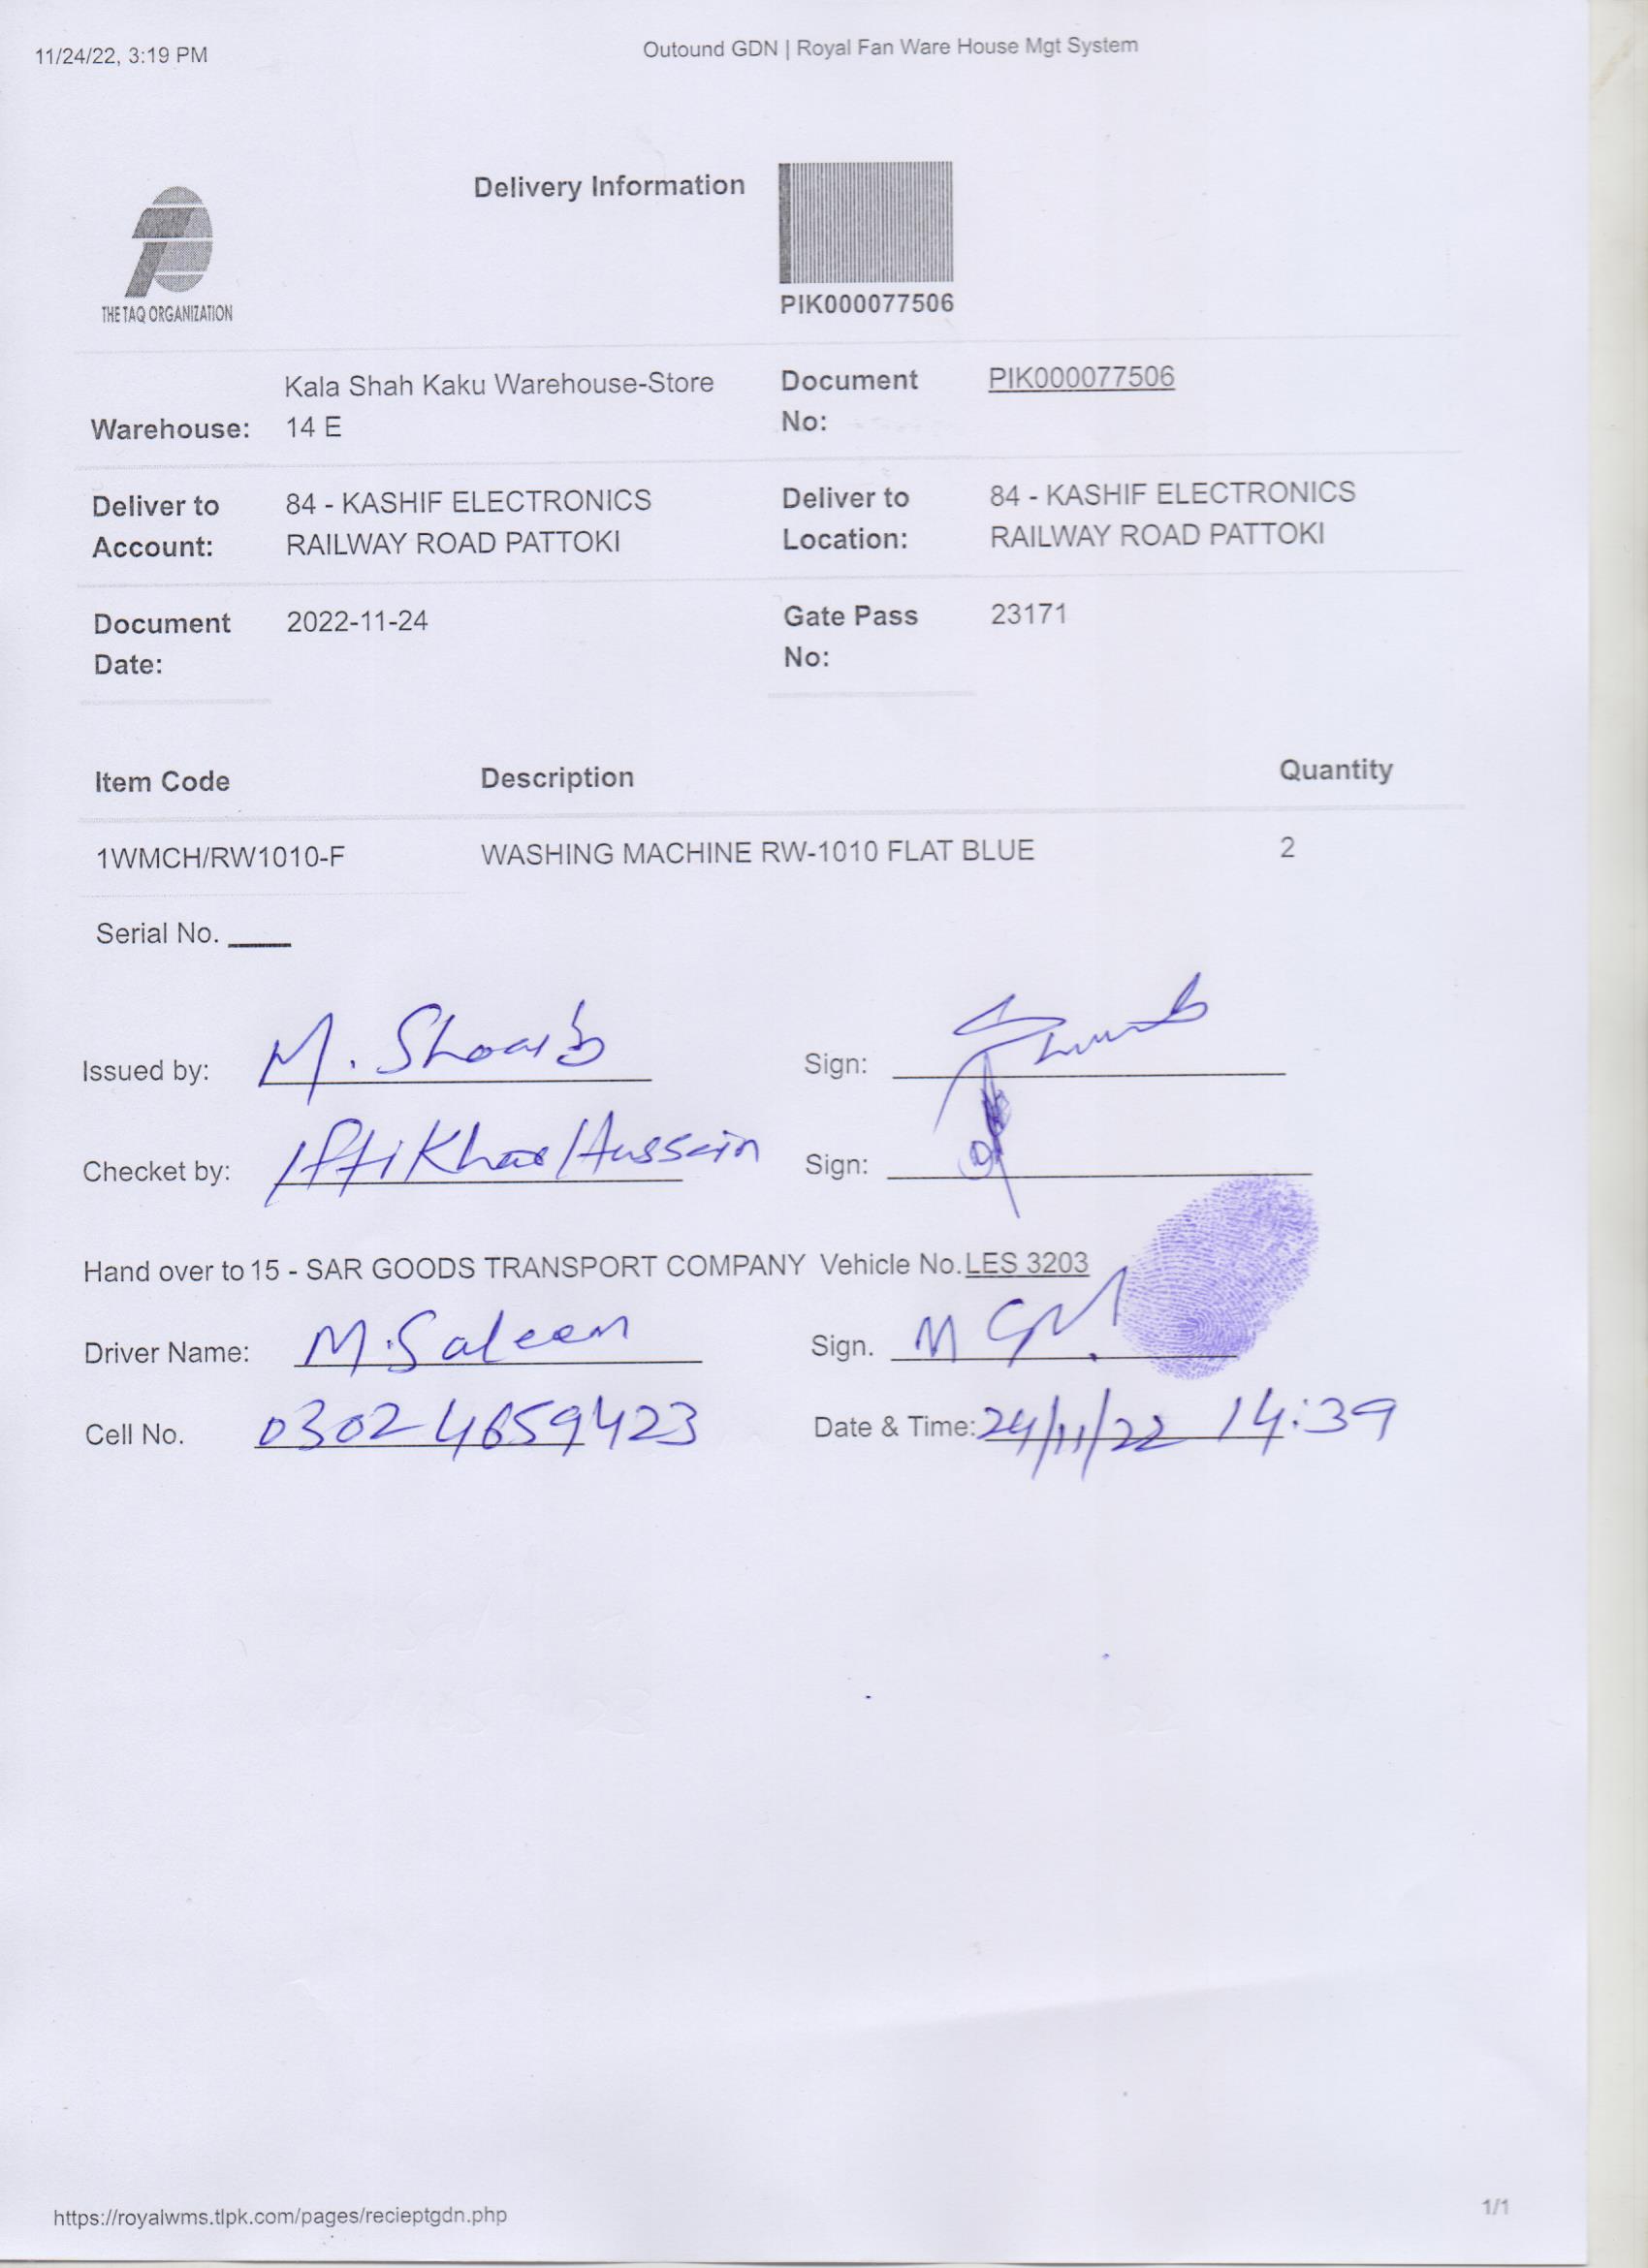 11/24/22, 3:19 PM
Outound GDN | Royal Fan Ware House Mgt System
Delivery Information
THE TAQ ORGANIZATION
PIK000077506
Warehouse: Kala Shah Kaku Warehouse-Store 14 E
Document No: PIK000077506
Deliver to Account: 84 - KASHIF ELECTRONICS RAILWAY ROAD PATTOKI
Deliver to Location: 84 - KASHIF ELECTRONICS RAILWAY ROAD PATTOKI
Document Date: 2022-11-24
Gate Pass No: 23171
Item Code Description Quantity
1WMCH/RW1010-F WASHING MACHINE RW-1010 FLAT BLUE 2
Serial No.
Issued by: M. Shoaib Sign:
Checket by: Iftikhar Hussain Sign:
Hand over to 15 - SAR GOODS TRANSPORT COMPANY Vehicle No. LES 3203
Driver Name: M. Saleem Sign.
Cell No. 0302 4659423 Date & Time: 24/11/22 14:39
https://royalwms.tlpk.com/pages/recieptgdn.php
1/1